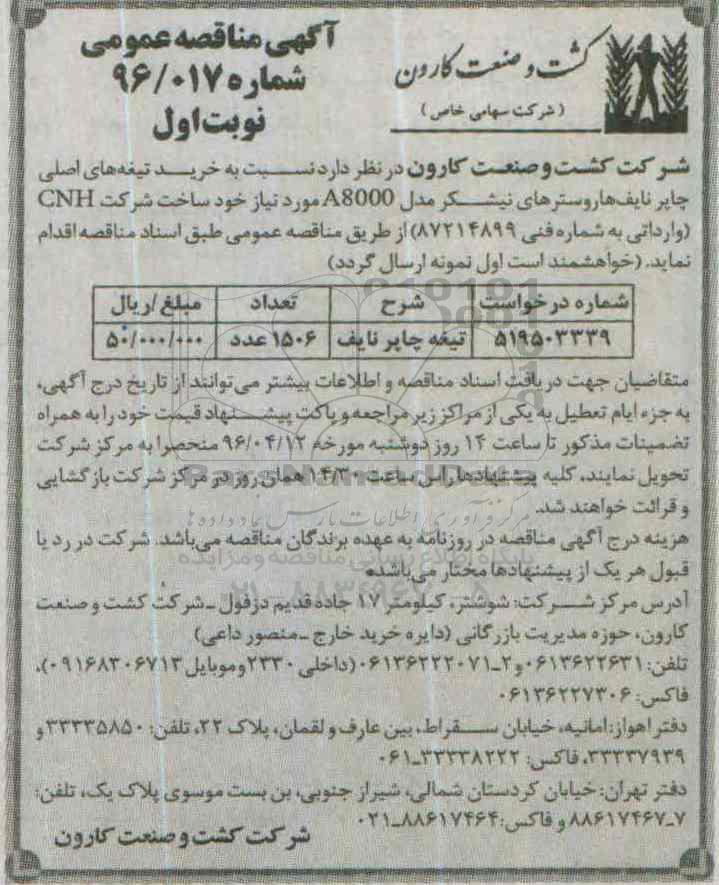 آگهی مناقصه عمومی
شماره ۹۶/۰۱۷
نوبت اول
کشت و صنعت کارون
(شرکت سهامی خاص)
شرکت کشت و صنعت کارون در نظر دارد نسبت به خرید تیغه‌های اصلی
چاپر نایف هاروسترهای نیشکر مدل A8000 مورد نیاز خود ساخت شرکت CNH
(وارداتی به شماره فنی ۸۷۲۱۴۸۹۹) از طریق مناقصه عمومی طبق اسناد مناقصه اقدام
نماید. (خواهشمند است اول نمونه ارسال گردد)
شماره درخواست شرح تعداد مبلغ/ریال
۵۱۹۵۰۳۳۳۹ تیغه چاپر نایف ۱۵۰۶ عدد ۵۰/۰۰۰/۰۰۰
متقاضیان جهت دریافت اسناد مناقصه و اطلاعات بیشتر می‌توانند از تاریخ درج آگهی،
به جزء ایام تعطیل به یکی از مراکز زیر مراجعه و پاکت پیشنهاد قیمت خود را به همراه
تضمینات مذکور تا ساعت ۱۴ روز دوشنبه مورخه ۹۶/۰۴/۱۲ منحصرا به مرکز شرکت
تحویل نمایند. کلیه پیشنهادها راس ساعت ۱۴/۳۰ همان روز در مرکز شرکت بازگشایی
و قرائت خواهند شد.
هزینه درج آگهی مناقصه در روزنامه به عهده برندگان مناقصه می‌باشد. شرکت در رد یا
قبول هر یک از پیشنهادها مختار می‌باشد.
آدرس مرکز شرکت: شوشتر، کیلومتر ۱۷ جاده قدیم دزفول ـ شرکت کشت و صنعت
کارون، حوزه مدیریت بازرگانی (دایره خرید خارج ـ منصور داعی)
تلفن: ۰۶۱۳۶۲۲۶۳۱ و ۲ـ۰۶۱۳۶۲۲۲۰۷۱ (داخلی ۲۳۳۰ و موبایل ۰۹۱۶۸۳۰۶۷۱۳)،
فاکس: ۰۶۱۳۶۲۲۷۳۰۶
دفتر اهواز: امانیه، خیابان سقراط، بین عارف و لقمان، پلاک ۲۲، تلفن: ۳۳۳۳۵۸۵۰ و
۳۳۳۳۷۹۳۹، فاکس: ۳۳۳۳۸۲۲۲ـ۰۶۱
دفتر تهران: خیابان کردستان شمالی، شیراز جنوبی، بن بست موسوی پلاک یک، تلفن:
۷ـ۸۸۶۱۷۴۶۷ و فاکس: ۸۸۶۱۷۴۶۴ـ۰۲۱
شرکت کشت و صنعت کارون
ParsNamadData
مرکز فرآوری اطلاعات پارس نماد داده ها
پایگاه اطلاع رسانی مناقصه و مزایده